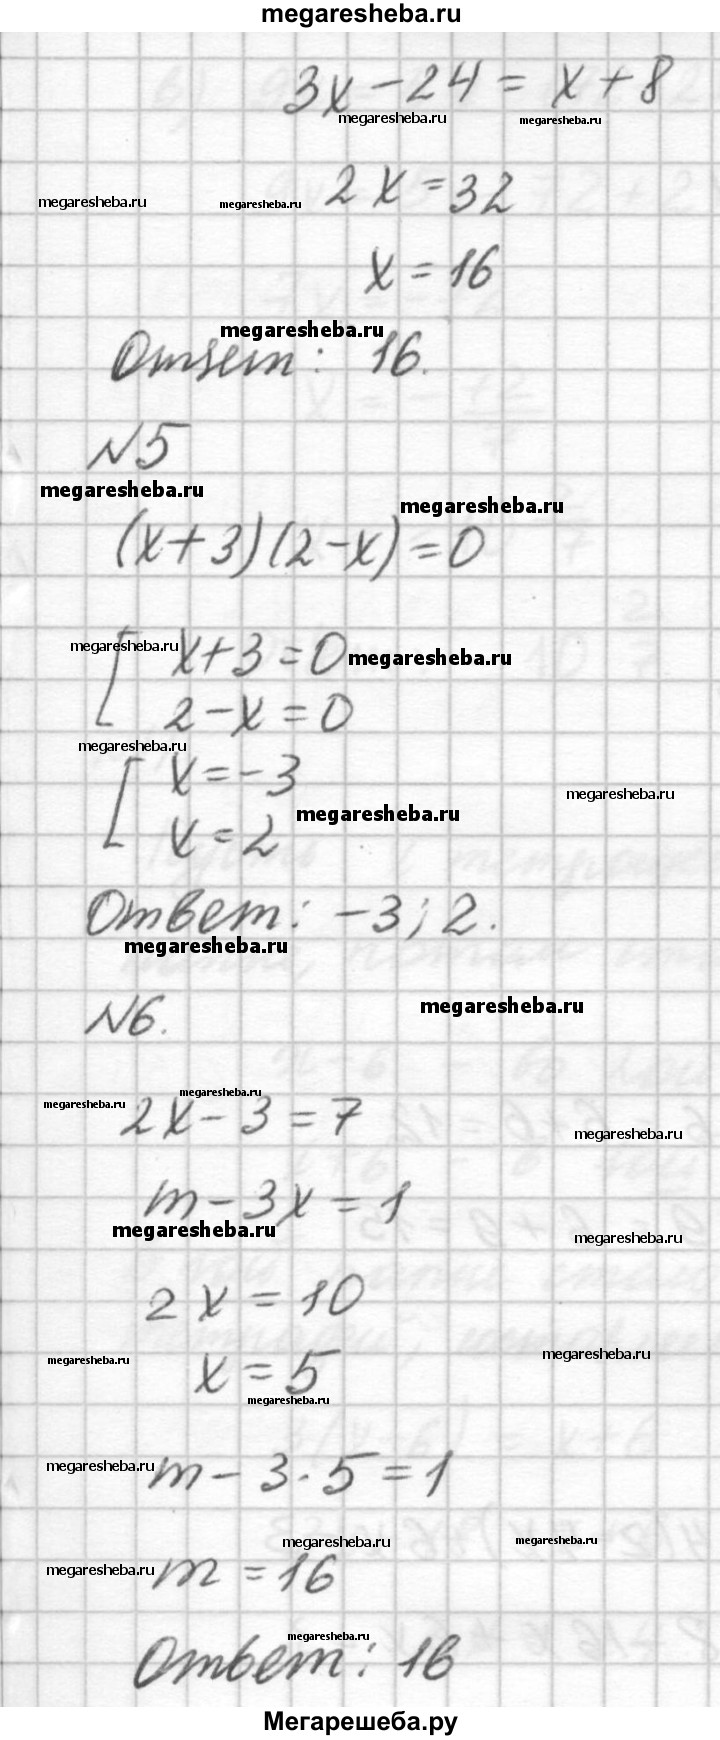 megaresheba.ru
3x - 24 = x + 8
megaresheba.ru megaresheba.ru
2x = 32
megaresheba.ru megaresheba.ru
x = 16
megaresheba.ru
Ответ: 16.
N5
megaresheba.ru megaresheba.ru
(x+3)(2-x)=0
megaresheba.ru
x+3=0
megaresheba.ru
2-x=0
megaresheba.ru
x=-3
megaresheba.ru
megaresheba.ru
x=2
Ответ: -3; 2.
megaresheba.ru
N6.
megaresheba.ru
megaresheba.ru megaresheba.ru
2x-3=7
megaresheba.ru
m-3x=1
megaresheba.ru megaresheba.ru
2x=10
megaresheba.ru megaresheba.ru
x=5
megaresheba.ru
megaresheba.ru
m-3·5=1
megaresheba.ru megaresheba.ru
megaresheba.ru
m=16
megaresheba.ru
Ответ: 16
Мегарешеба.ру